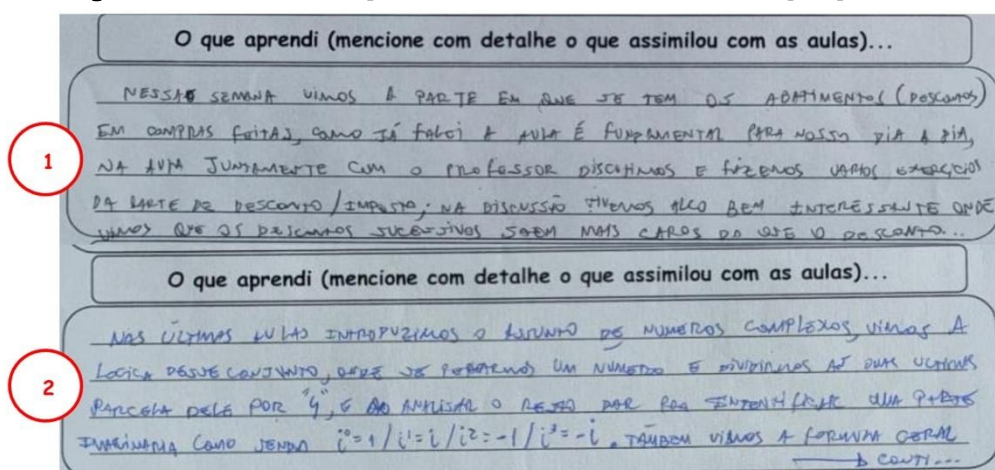 O que aprendi (mencione com detalhe o que assimilou com as aulas)...
NESSA SEMANA VIMOS A PARTE EM QUE SE TEM OS ABATIMENTOS (DESCONTOS)
EM COMPRAS FEITAS, COMO JÁ FALEI A AULA É FUNDAMENTAL PARA NOSSO DIA A DIA,
1
NA AULA JUNTAMENTE COM O PROFESSOR DISCUTIMOS E FIZEMOS VARIOS EXERCÍCIOS
DA PARTE DE DESCONTO/IMPOSTO; NA DISCUSSÃO TIVEMOS ALGO BEM INTERESSANTE ONDE
VIMOS QUE OS DESCONTOS SUCESSIVOS SAEM MAIS CAROS DO QUE O DESCONTO...
O que aprendi (mencione com detalhe o que assimilou com as aulas)...
NAS ÚLTIMAS AULAS INTRODUZIMOS O ASSUNTO DE NUMEROS COMPLEXOS, VIMOS A
LOGICA DESSE CONJUNTO, ONDE SE PEGARMOS UM NUMERO E DIVIDIRMOS AS DUAS ULTIMAS
2
PARCELA DELE POR "4", E AO ANALISAR O RESTO DAR PRA IDENTIFICAR UMA PARTE
IMAGINARIA COMO SENDO i⁰=1/i¹=i/i²=-1/i³=-i. TAMBEM VIMOS A FORMULA GERAL
→ CONTI...